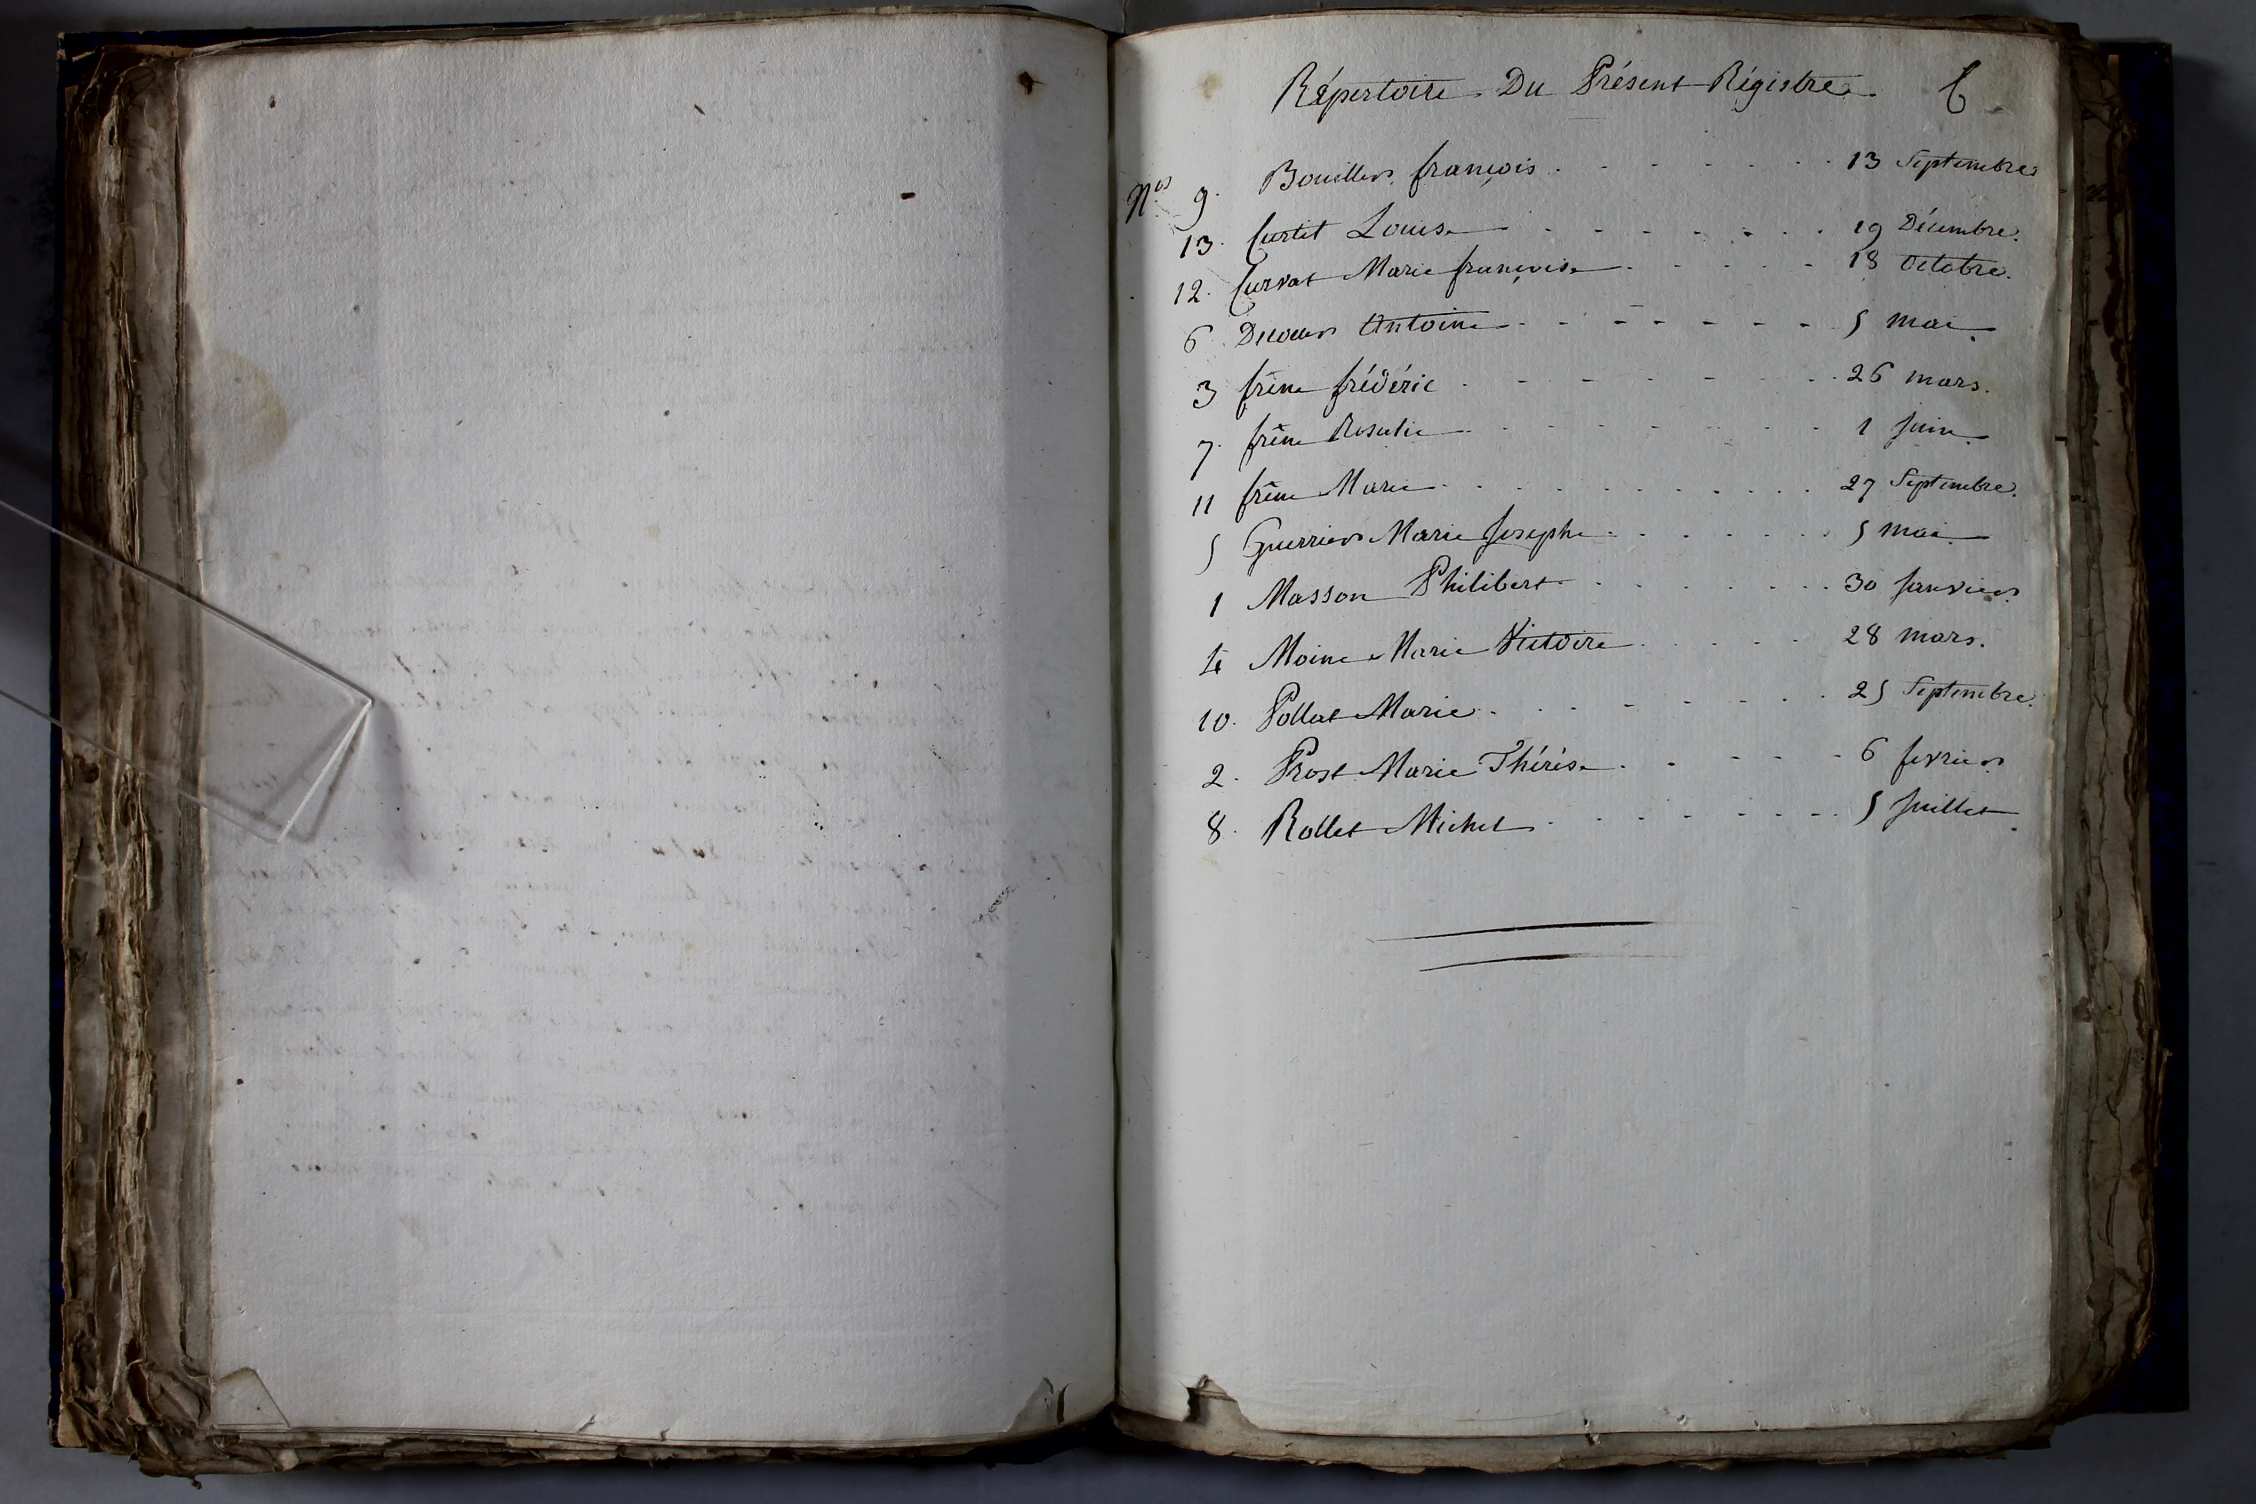 Répertoire Du Présent Régistre. 6
Nos 9. Bouiller françois 13 Septembre
13. Curtet Louise 19 Décembre.
12. Curvat Marie françoise 18 Octobre.
6 Decoeur Antoine 5 mai
3 frêne frédéric 26 mars.
7. frêne Rosalie 1 Juin.
11 frêne Marie 27 Septembre.
5 Guerrier Marie Josephe 5 mai
1 Masson Philibert 30 Janvier
4 Moine Marie Victoire 28 mars.
10. Pollat Marie 25 Septembre.
2. Prost Marie Thérèse 6 fevrier
8. Rollet Michel 5 Juillet.